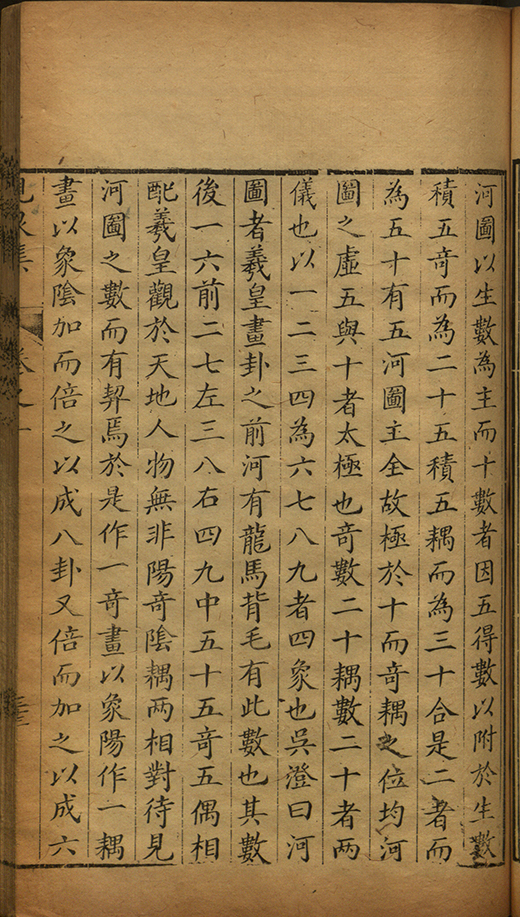 河圖以生數為主而十數者因五得數以附於生數
積五奇而為二十五積五耦而為三十合是二者而
為五十有五河圖主全故極於十而奇耦之位均河
圖之虛五與十者太極也奇數二十耦數二十者兩
儀也以一二三四為六七八九者四象也吳澄曰河
圖者羲皇畫卦之前河有龍馬背毛有此數也其數
後一六前二七左三八右四九中五十五奇五偶相
配羲皇觀於天地人物無非陽奇陰耦兩相對待見
河圖之數而有契焉於是作一奇畫以象陽作一耦
畫以象陰加而倍之以成八卦又倍而加之以成六
集 卷之一